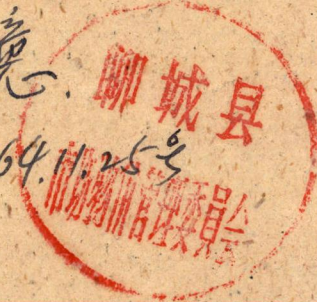 意.
64.11.25号
聊城县
市场物价管理委員会